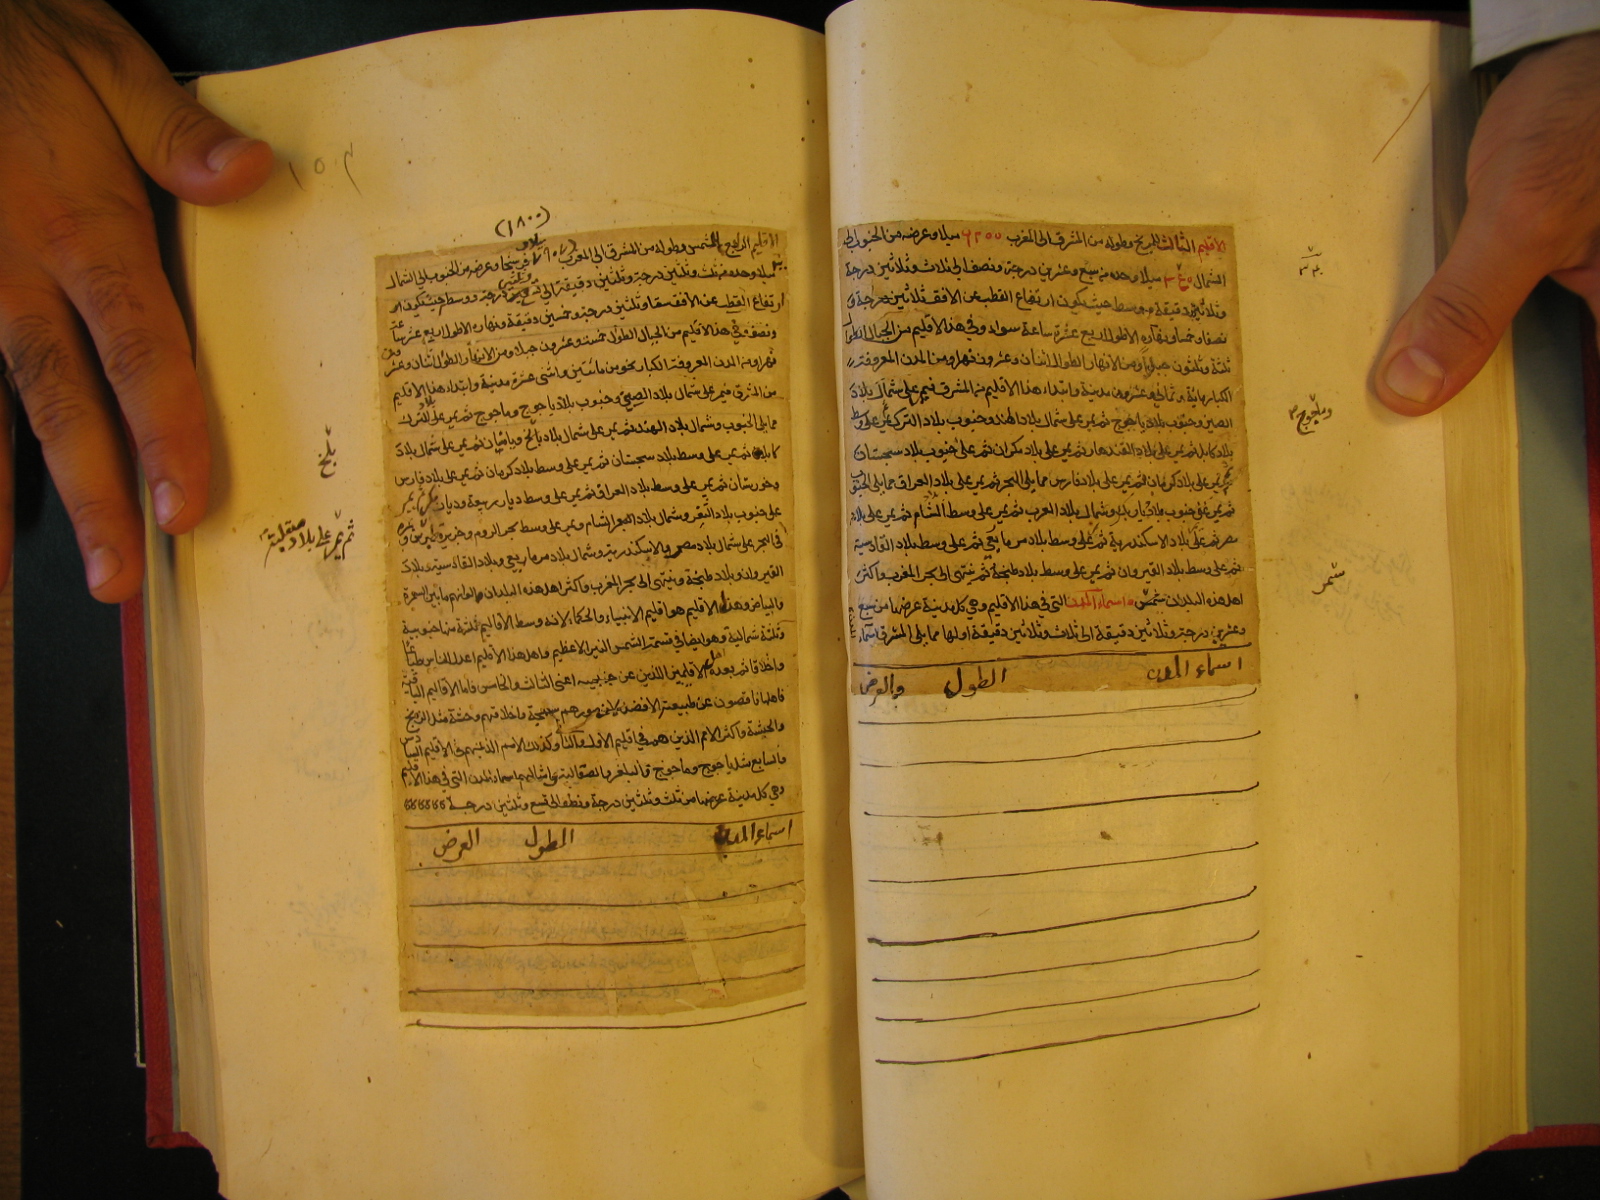 الاقليم الثالث للمريخ وطوله من المشرق الى المغرب ٨٢٠٠ ميلا وعرضه من الجنوب الى
الشمال ميلا وحده من سبع وعشرين درجة ونصف الى ثلاث وثلاثين درجة
وثلاثين دقيقة ووسط حيث يكون ارتفاع القطب عن الافق ثلاثين درجة و
نصفا وخمسا ونهاره الاطول اربع عشرة ساعة سواء وفي هذا الاقليم من الجبال الطوال
ثلثة وثلثون جبلا ومن الانهار الطوال اثنان وعشرون نهرا ومن المدن المعروفة
الكبار مائة وثمانى وعشرون مدينة وابتداء هذا الاقليم من المشرق فيمر على شمال بلاد
الصين وجنوب بلاد ياجوج ثم يمر على شمال بلاد الهند وجنوب بلاد الترك ثم يمر على وسط
بلاد كابل ثم يمر على بلاد القندهار ثم يمر على بلاد مكران ثم على جنوب بلاد سجستان
ثم يمر على بلاد كرمان ثم يمر على بلاد فارس مما يلى البحر ثم يمر على بلاد العراق مما يلى الجنوب
ثم يمر على جنوب بلاد ديار بكر وشمال بلاد العرب ثم يمر على وسط الشام ثم يمر على بلاد
مصر ثم على بلاد الاسكندرية ثم على وسط بلاد ثم على وسط بلاد القادسية
ثم على وسط بلاد القيروان ثم يمر على وسط بلاد طنجة ثم ينتهى الى بحر المغرب واكثر
اهل هذه البلدان سمر اسماء المدن التى في هذا الاقليم وهي كل مدينة عرضها من سبع
وعشرين درجة وثلاثين دقيقة الى ثلاث وثلاثين دقيقة اولها مما يلى المشرق
اسماء المدن الطول والعرض
وماجوج
سمر
١٥٣
(١٨٠٠)
الاقليم الرابع للشمس وطوله من المشرق الى المغرب وعرضه من الجنوب الى الشمال
ميلا وحده من ثلث وثلثين درجة وثلثين دقيقة الى تسع وثلثين درجة ووسطه حيث يكون
ارتفاع القطب عن الافق ستا وثلثين درجة وخمسين دقيقة ونهاره الاطول اربع عشرة ساعة
ونصف وفي هذا الاقليم من الجبال الطوال خمسة وعشرون جبلا ومن الانهار الطوال اثنان وعشرون
نهرا ومن المدن المعروفة الكبار نحو من مائتين واثنى عشرة مدينة وابتداء هذا الاقليم
من الشرق فيمر على شمال بلاد الصين وجنوب بلاد ياجوج وماجوج ثم يمر على بلاد الترك
مما يلى الجنوب وشمال بلاد الهند ثم يمر على شمال بلاد بالخ وباميان ثم يمر على شمال بلاد
كابل ثم يمر على وسط بلاد سجستان ثم يمر على وسط بلاد كرمان ثم يمر على بلاد فارس
وخوزستان ثم يمر على وسط بلاد العراق ثم يمر على وسط ديار ربيعة وديار بكر ثم يمر
على جنوب بلاد الثغر وشمال بلاد الشام ويمر على وسط بحر الروم وجزيرة قبرس
في البحر على شمال بلاد مصر والاسكندرية وشمال بلاد وبلاد القادسية وبلاد
القيروان وبلاد طنجة وينتهى الى بحر المغرب واكثر اهل هذه البلدان الوانهم ما بين السمرة
والبياض وهذا الاقليم هو اقليم الانبياء والحكماء لانه وسط الاقاليم ثلثة منها جنوبية
وثلثة شمالية وهو ايضا في قسمة الشمس النير الاعظم واهل هذا الاقليم اعدل الناس طباعا
واخلاقا ثم بعده الاقليمين اللذين عن جنبيه اعنى الثالث والخامس فاما الاقاليم الباقية
فاهلها ناقصون عن طبيعة الافضل لان صورهم سمجة واخلاقهم وحشة مثل الزنج
والحبشة واكثر الامم الذين هم في اقليم الاول والثانى وكذلك الامم الذين هم في الاقليم السادس
والسابع مثل ياجوج وماجوج والبلغر والصقالبة وامثالهم اسماء المدن التى في هذا الاقليم
وهي كل مدينة عرضها من ثلث وثلثين درجة ونصف الى تسع وثلثين درجة
اسماء المدن الطول العرض
بلخ
ثم يمر على بلاد صقلية